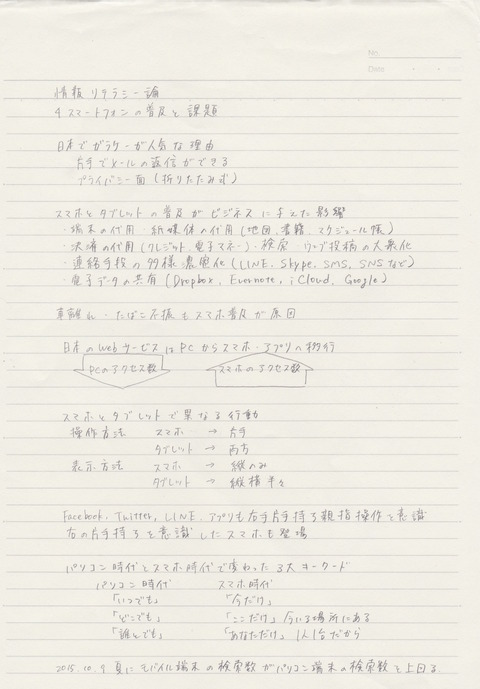 No.
Date
情報リテラシー論
4 スマートフォンの普及と課題
日本でガラケーが人気な理由
片手でメールの返信ができる
プライバシー面(折りたたみ式)
スマホとタブレットの普及がビジネスに与えた影響
・端末の代用・紙媒体の代用(地図、書籍、スケジュール帳)
・決済の代用(クレジット、電子マネー)・検索・ウェブ投稿の大衆化
・連絡手段の多様、濃密化(LINE、Skype、SMS、SNSなど)
・電子データの共有(Dropbox、Evernote、iCloud、Google)
車離れ・たばこ不振もスマホ普及が原因
日本のWebサービスはPCからスマホ・アプリへ移行
PCのアクセス数 スマホのアクセス数
スマホとタブレットで異なる行動
操作方法 スマホ → 片手
タブレット → 両方
表示方法 スマホ → 縦のみ
タブレット → 縦横半々
Facebook、Twitter、LINE、アプリも右手片手持ち親指操作を意識
右の片手持ちを意識したスマホも登場
パソコン時代とスマホ時代で変わった3大キーワード
パソコン時代 スマホ時代
「いつでも」 「今だけ」
「どこでも」 「ここだけ」今いる場所にある
「誰とでも」 「あなただけ」1人1台だから
2015.10.9 夏にモバイル端末の検索数がパソコン端末の検索数を上回る。